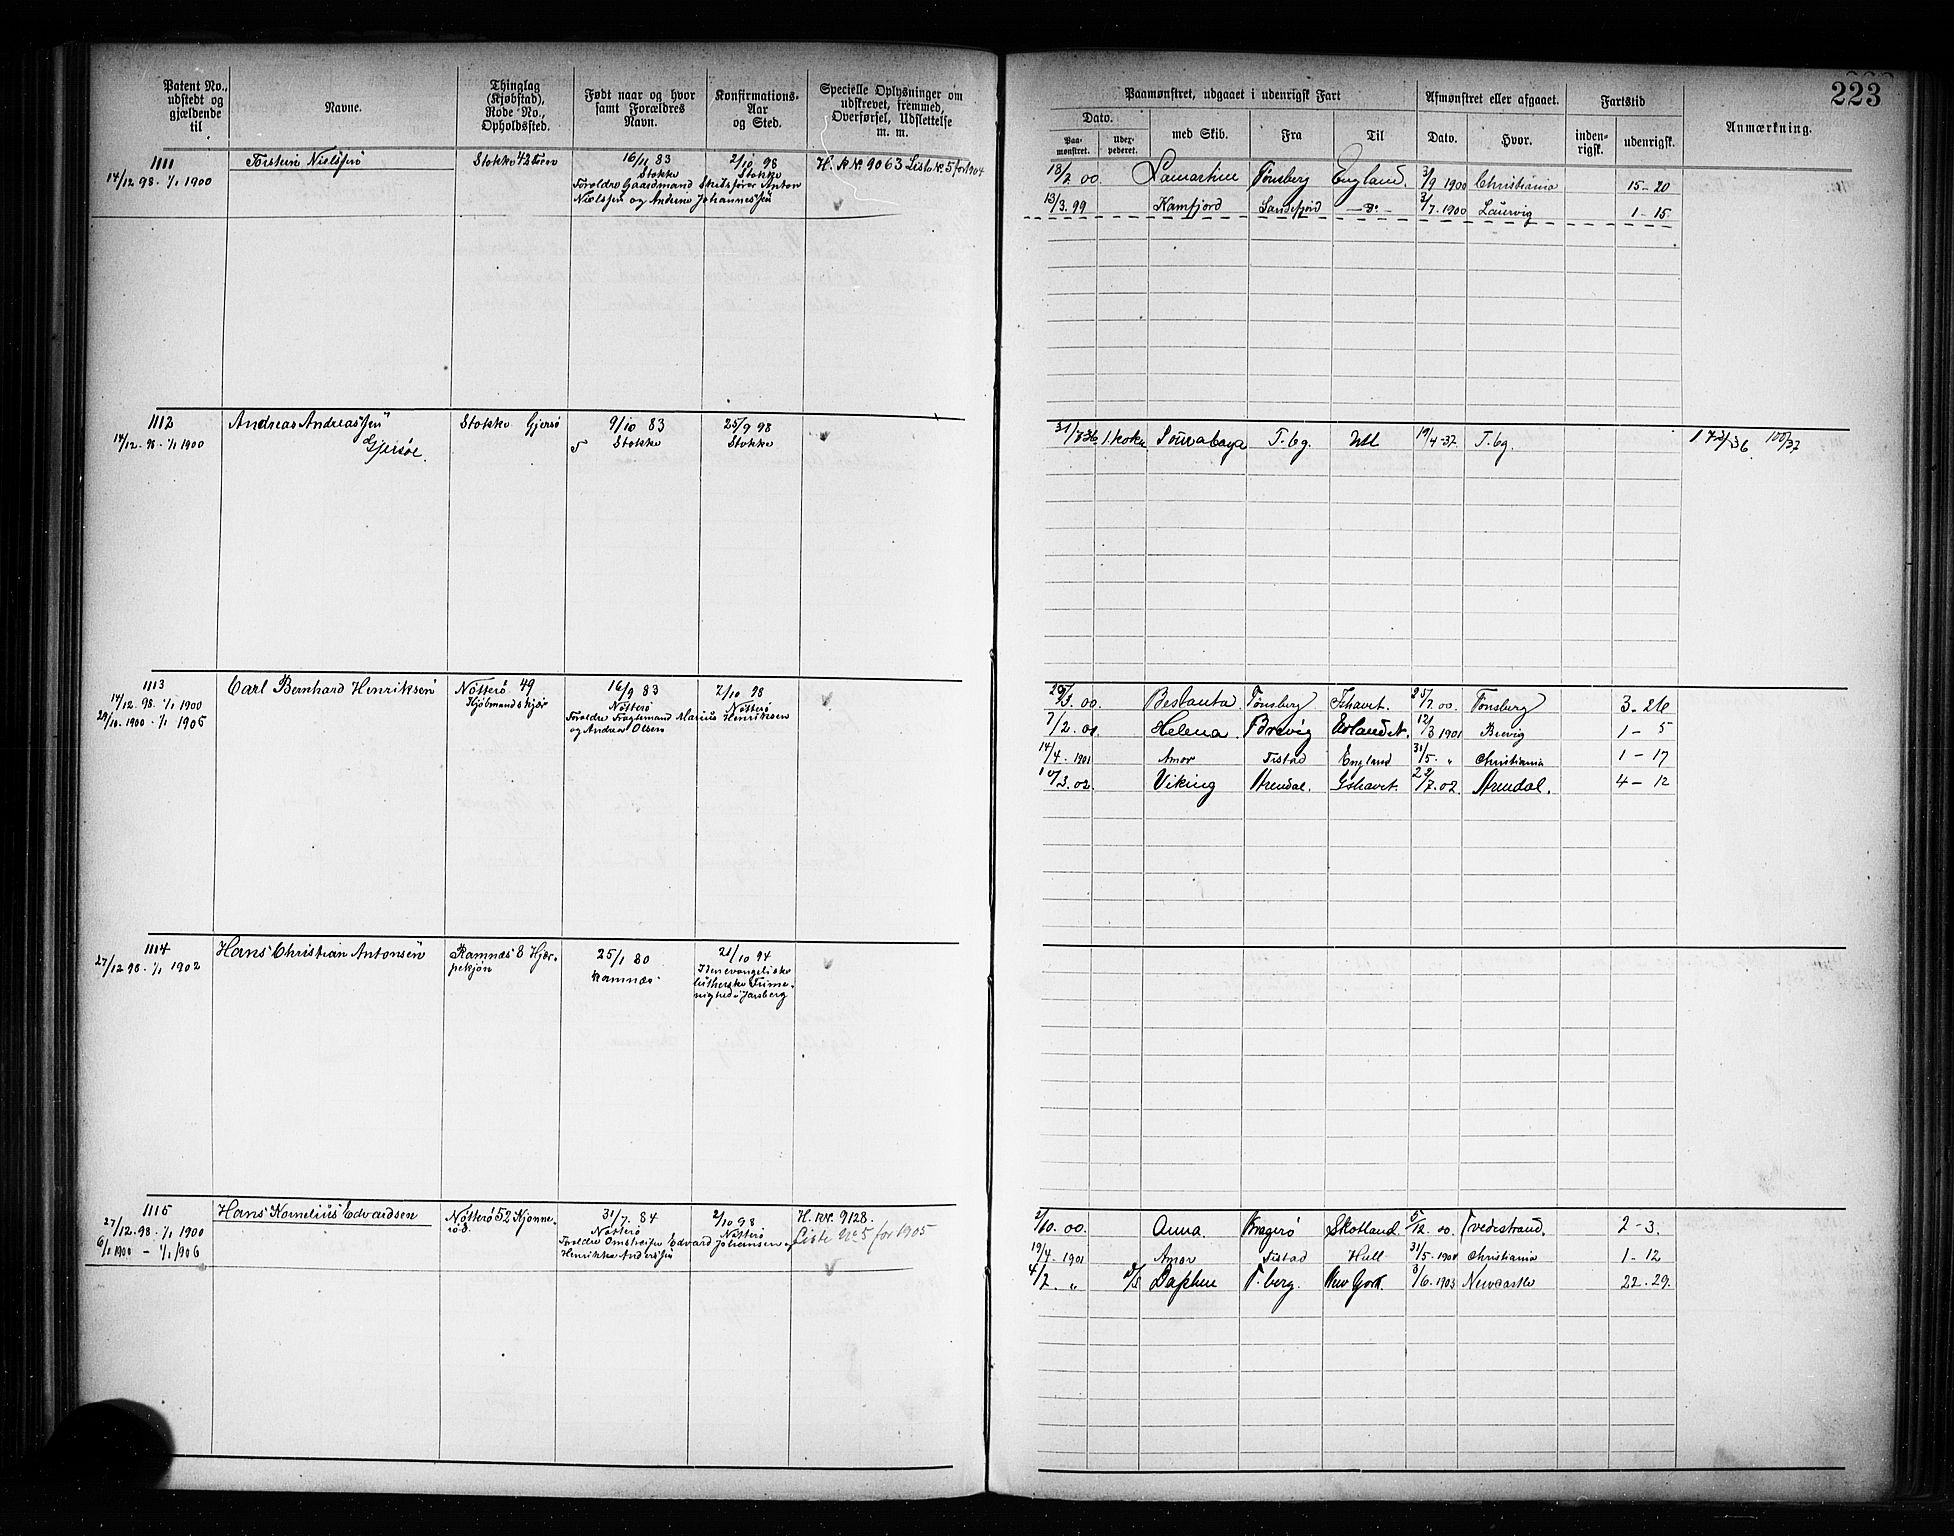 223
Patent No., udstedt og gjældende til
Navne.
Thinglag (Kjøbstad), Rode No., Opholdssted.
Født naar og hvor samt Forældres Navn.
Konfirmations-Aar og Sted.
Specielle Oplysninger om udskrevet, fremmed, Overførsel, Udslettelse m. m.
Paamønstret, udgaaet i udenrigsk Fart
Afmønstret eller afgaaet.
Fartstid
Anmærkning.
Dato.
Paa-mønstret.
Uder-pederet.
med Skib.
Fra
Til
Dato.
Hvor.
inden-rigsk.
udenrigsk.
1111
14/12 98. 1/1 1900
Torstein Nielsen
Stokke 42
16/11 83
Stokke
Forældre Gaardmand Skibsfører Anton
Nielssen og Andrine Johannessen
2/10 98
Stokke
H. R Nr. 9063 Liste Nr. 5 for 1904
18/2 00. Lamartine Tønsberg England. 3/9 1900 Christiania 15-20
13/3. 99 Kamfjord Sandefjord —"— 3/7. 1900 Laurvig 1-15
1112
14/12. 98. 1/1 1900
Andreas Andreassen
Gjersøe.
Stokke Gjersø
9/10 83
Stokke
25/9 98
Stokke
31/7 36 1. kokk Sourabaya T.bg. Utl 19/4-37. T.bg.
1113
14/12. 98. 1/1 1900
29/10. 1900. 1/1 1905
Carl Bernhard Henriksen
Nøtterø 49
Kjøbmandskjær
16/9 83
Nøtterø
Forældre Fragtemand Marius Henriksen
og Andrea Olsen
2/10 98
Nøtterø
29/3. 00. Bestanta Tønsberg Ishavet. 25/7. 00. Tønsberg 3-26
7/2. 01. Helena Brevig Udlandet. 12/3 1901 Brevig 1-5
14/4. 1901 Amor Tistad England 31/5 " Christiania 1-17
10/3. 02. Viking Arendal. Ishavet. 22/7. 02. Arendal. 4-12
1114
27/12 98. 1/1 1902
Hans Christian Antonsen
Ramnæs 8 Hjær-
pekjøn
25/1 80
Ramnæs
21/10 94
I den evangeliske
lutherske Frime-
nighed i Jarlsberg
1115
27/12. 98. 1/1 1900
6/1 1900 – 1/1 1906
Hans Kornelius Edvardsen
Nøtterø 52 Kjønne-
rød
31/7. 84
Nøtterø
Forældre Omstreifer Edvard Johansen og
Henrikke Anderssen
2/10 98
Nøtterø
H. R Nr. 9128.
Liste Nr. 5 for 1905
2/10. 00. Anna Kragerø Skotland 5/12. 00. Tvedestrand. 2-3.
19/4. 1901 Amor Tistad Hull 31/5. 1901 Christiania 1-12
4/2. " Daphne T.berg. New York 3/6. 1903 Newcastle 22-29.